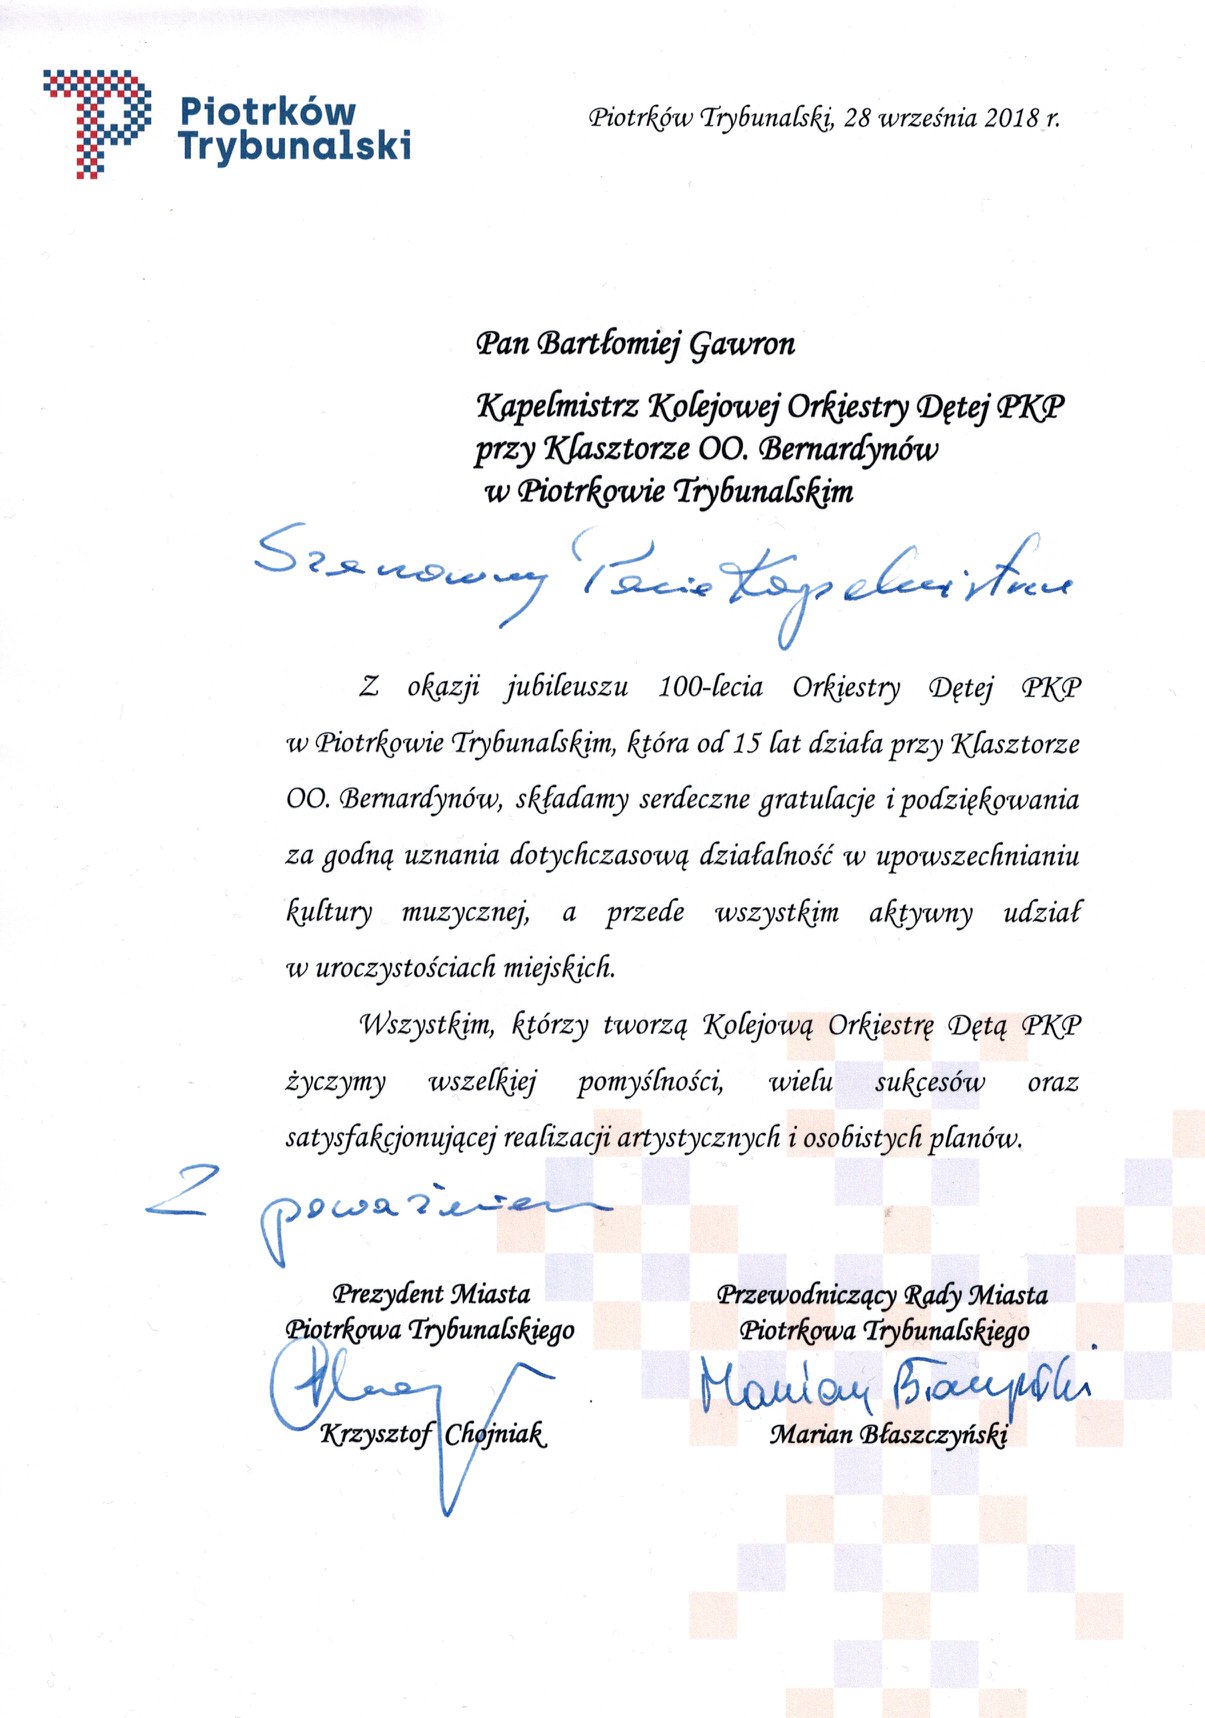 Piotrków
Trybunalski
Piotrków Trybunalski, 28 września 2018 r.
Pan Bartłomiej Gawron
Kapelmistrz Kolejowej Orkiestry Dętej PKP
przy Klasztorze OO. Bernardynów
w Piotrkowie Trybunalskim
Szanowny Panie Kapelmistrzu
Z okazji jubileuszu 100-lecia Orkiestry Dętej PKP
w Piotrkowie Trybunalskim, która od 15 lat działa przy Klasztorze
OO. Bernardynów, składamy serdeczne gratulacje i podziękowania
za godną uznania dotychczasową działalność w upowszechnianiu
kultury muzycznej, a przede wszystkim aktywny udział
w uroczystościach miejskich.
Wszystkim, którzy tworzą Kolejową Orkiestrę Dętą PKP
życzymy wszelkiej pomyślności, wielu sukcesów oraz
satysfakcjonującej realizacji artystycznych i osobistych planów.
Z poważaniem
Prezydent Miasta
Piotrkowa Trybunalskiego
Krzysztof Chojniak
Przewodniczący Rady Miasta
Piotrkowa Trybunalskiego
Marian Błaszczyński
Marian Błaszczyński